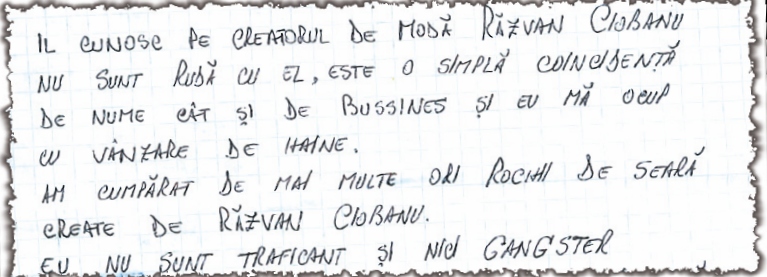 IL CUNOSC PE CREATORUL DE MODĂ RĂZVAN CIOBANU
NU SUNT RUDĂ CU EL, ESTE O SIMPLĂ COINCIDENȚĂ
DE NUME CÂT ȘI DE BUSSINES ȘI EU MĂ OCUP
CU VÂNZARE DE HAINE.
AM CUMPĂRAT DE MAI MULTE ORI ROCHII DE SEARĂ
CREATE DE RĂZVAN CIOBANU.
EU NU SUNT TRAFICANT ȘI NICI GANGSTER